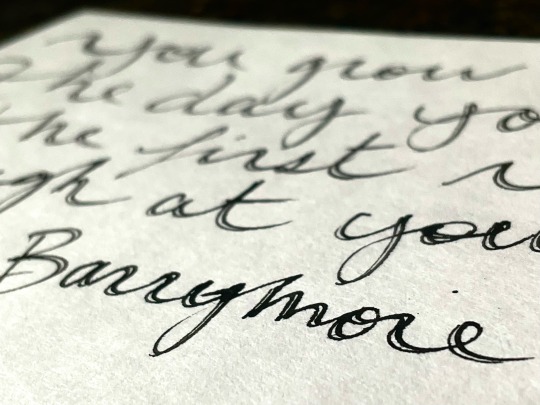 you grow
the day yo
the first r
gh at you
Barrymore